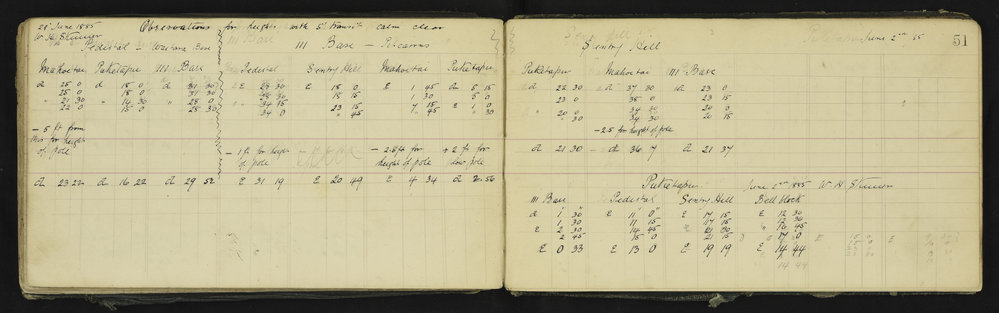 28 June 1885 Observations for heights with 5" transit calm clear
W. H. Skinner
Pedestal Westown Base III Base — Ricarns
Mahoetai Puketapu III Base Pedestal Sentry Hill Mahoetai Puketapu
d 25 0 d 18 0 d 31 30 E 28 30 E 18 0 E 1 45 d 5 15
25 0 18 0 31 30 28 30 18 15 1 30 5 0
" 21 30 " 14 30 " 28 0 " 34 15 23 15 " 7 15 E 1 0
22 0 15 0 28 30 34 0 " 45 " 45 " 30
— 5 ft from this for height of pole
— 1 ft for height of pole
— 2.8 ft for height of pole
+ 2 ft for low pole
d 23 22 d 16 22 d 29 52 E 31 19 E 20 49 E 4 34 d 2 56
51
Sentry Hill June 2nd 85
Puketapu Mahoetai III Base
d 22 30 d 37 30 d 23 0
23 0 38 0 23 15
" 20 0 34 30 20 0
" 30 34 30 20 15
— 2.5 for height of pole
d 21 30 — d 36 7 d 21 37
Puketapu June 2nd 1885 W. H. Skinner
III Base Pedestal Sentry Hill Bell block
d 1' 30" E 11' 0" E 17 15 E 12 30
1 30 11 15 17 15 12 30
E 2 30 14 45 " 21 30 " 16 45
2 45 15 0 21 15 17 0
E 0 33 E 13 0 E 19 19 E 14 44
14 44